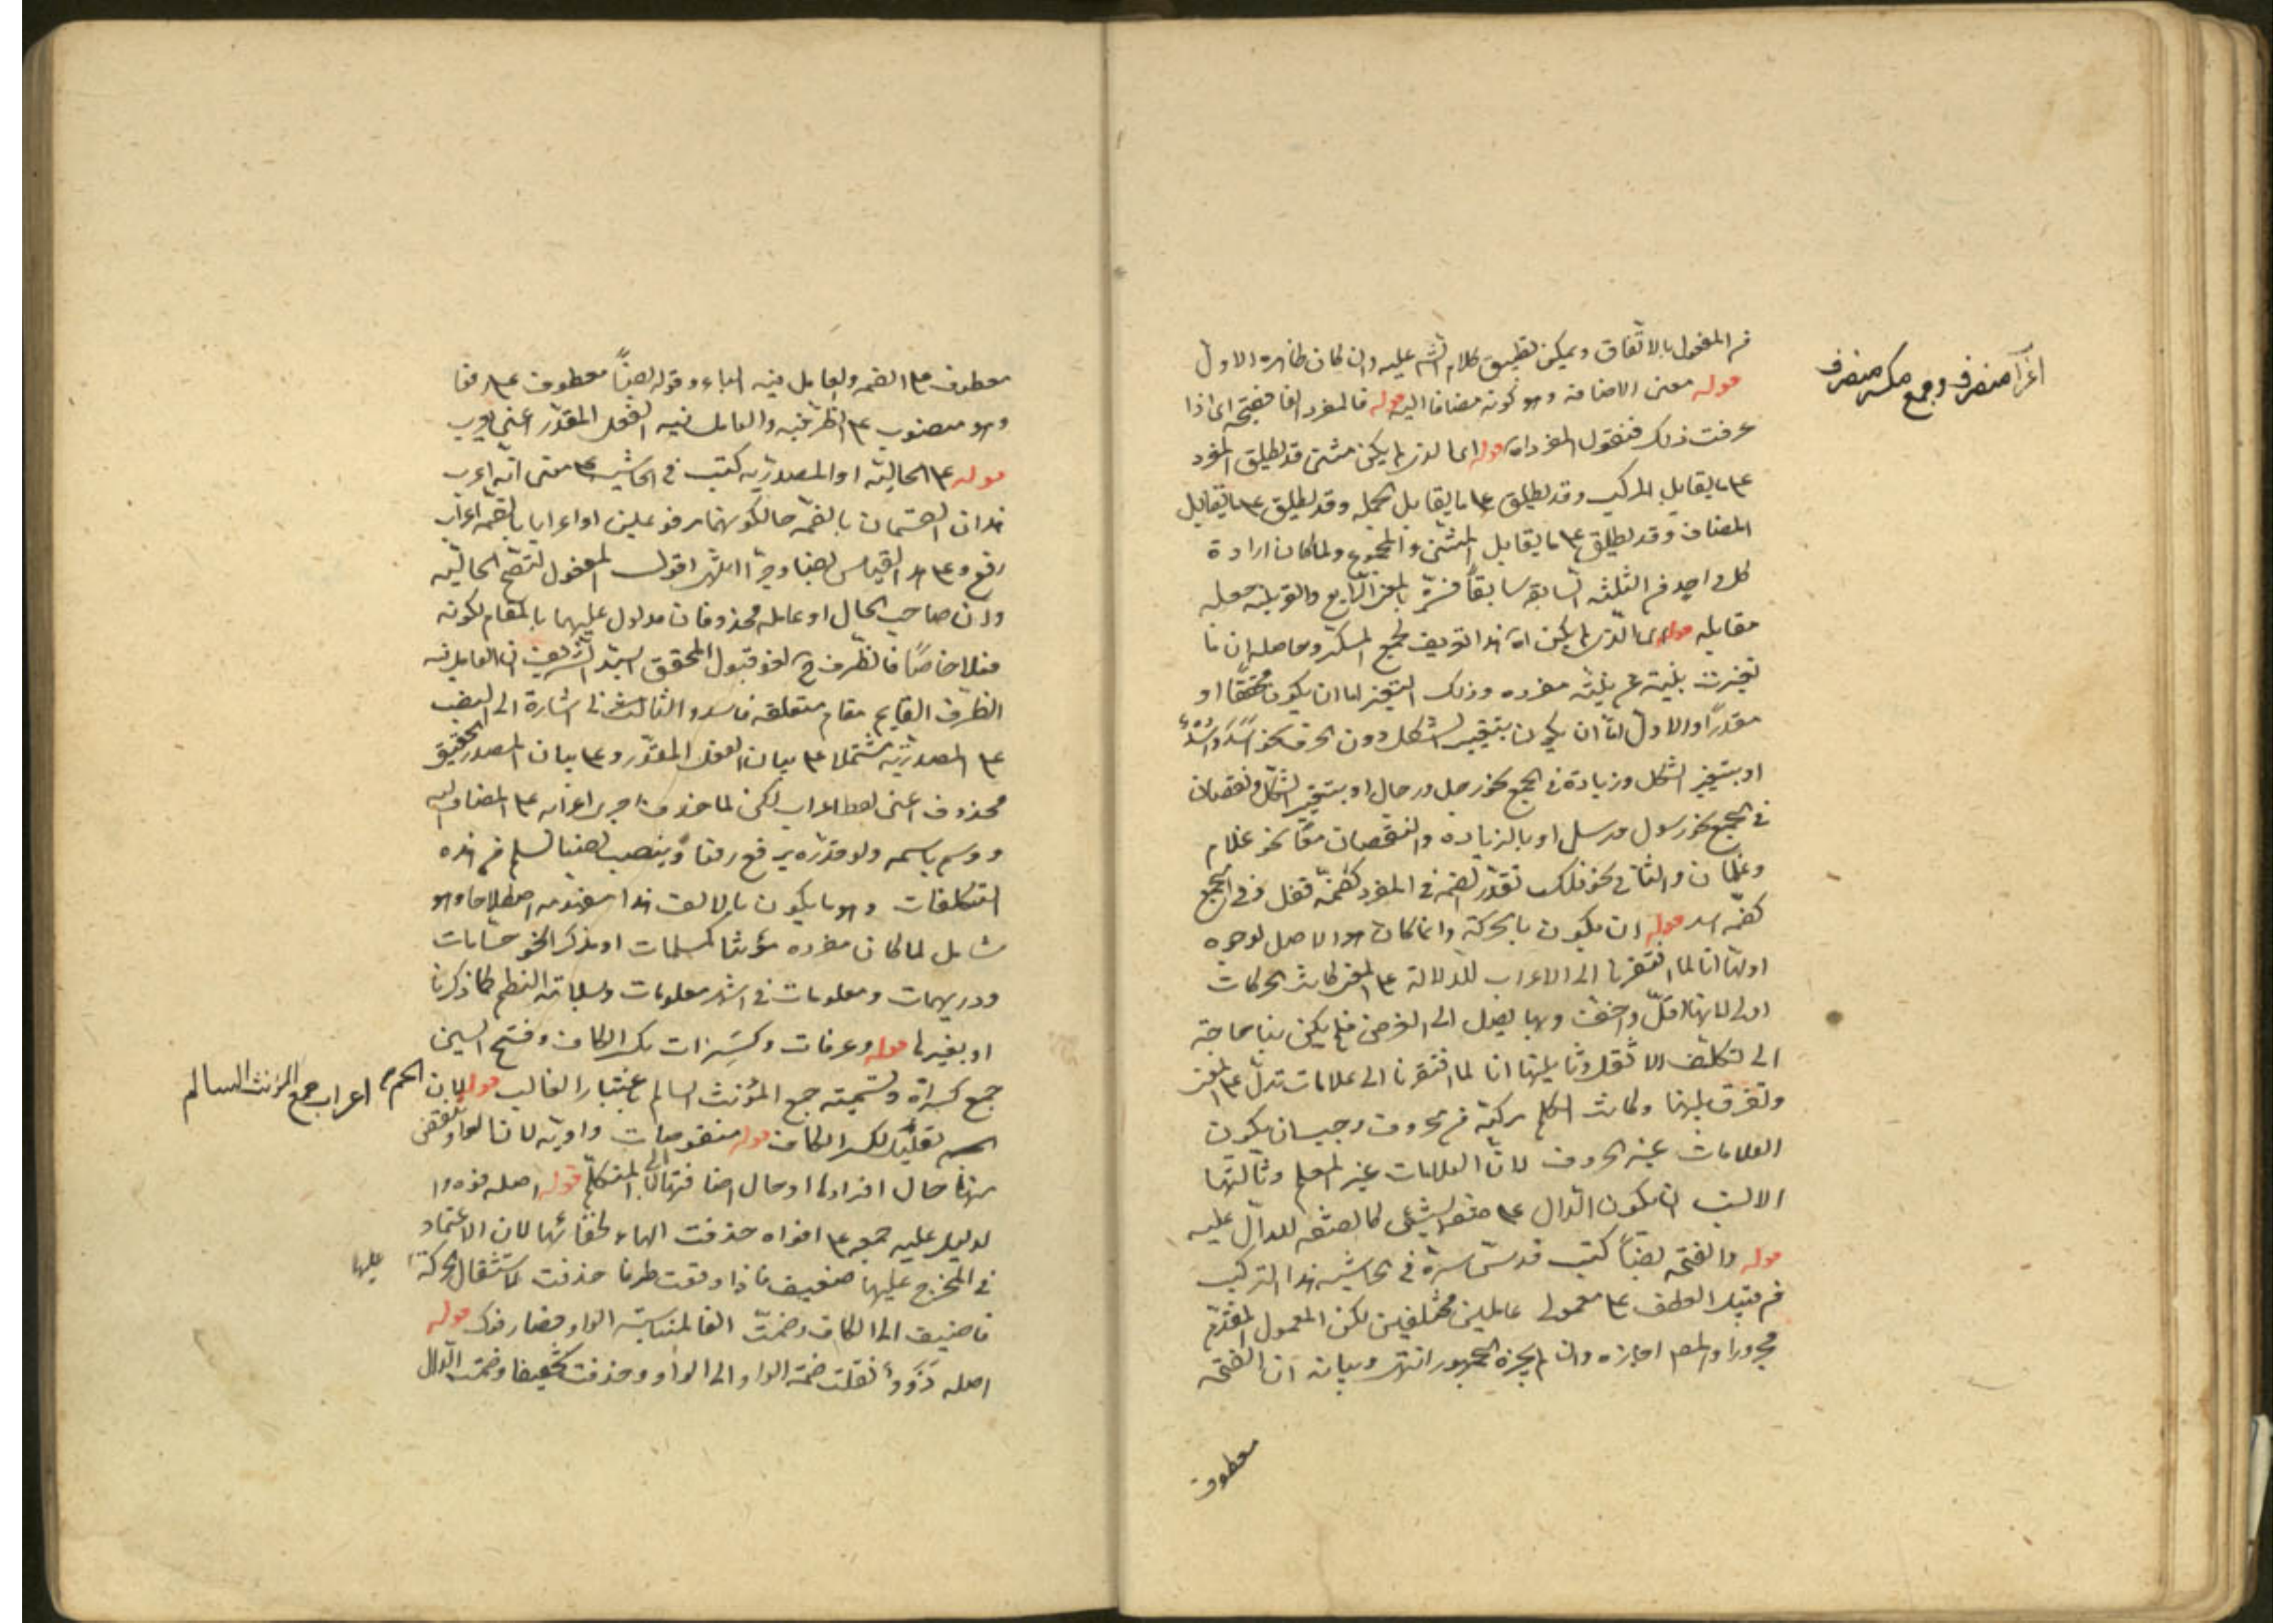 من المفعول بالاتفاق ويمكن تطبيق كلام الش عليه وان كان ظاهره الاول
قوله معنى الاضافة وهو كونه مضافا اليه قوله فالمفرد الفا فصيحة اى اذا
عرفت ذلك فنقول المفرد اه قوله اى الذى لم يكن مثنى قد يطلق المفرد
على ما يقابل المركب وقد يطلق على ما يقابل الجملة وقد يطلق على ما يقابل
المضاف وقد يطلق على ما يقابل المثنى والمجموع ولما كان ارادة
كل واحد من الثلثة السابقة سابقا فسره بالمعنى الرابع والقرينة جعله
مقابله قوله اى الذى لم يكن اه هذا تعريف لجمع المكسر وحاصله ان ما
تغيرت بنيته عن بنية مفرده وذلك التغير اما ان يكون محققا او
مقدرا والاول اما ان يكون بتغيير الشكل دون الحرف نحو اسد واسد
او بتغيير الشكل وزيادة فى الجمع نحو رجل ورجال او بتغيير الشكل ونقصان
فى الجمع نحو رسول ورسل او بالزيادة والنقصان معا نحو غلام
وغلمان والثانى نحو فلك تقدر الضمة فى المفرد كضمة قفل وفى الجمع
كضمة اسد قوله ان يكون بالحركة وانما كان هو الاصل لوجوه
اولها انا لما افتقرنا الى الاعراب للدلالة على المعنى كانت الحركات
اولى لانها اقل واخف وبها يصل الى الغرض فلم يكن بنا حاجة
الى تكلف الاثقل وثانيها انا لما افتقرنا الى علامات تدل على المعنى
وتفرق بينها وكانت الكلم مركبة من حروف وجب ان يكون
العلامات غير الحروف لان العلامات غير المعلم وثالثها
الانسب ان يكون الدال على صفة الشئ كالصفة للدال عليه
قوله والفتحة نصبا كتب قدس سره فى الحاشية هذا التركيب
من قبيل العطف على معمولى عاملين مختلفين لكن المعمول المقدم
مجرور والمص اجازه وان لم يجزه الجمهور انتهى وبيانه ان الفتحة
معطوف
منصرف وجمع مكسر منصرف
معطوف على الضمة والعامل فيه الباء وقوله نصبا معطوف على رفعا
وهو منصوب على الظرفية والعامل فيه الفعل المقدر اعنى يعرب
قوله على الحالية او المصدرية كتب فى الحاشية على معنى انه اعرب
هذان القسمان بالضمة حال كونهما مرفوعين او اعرابا بالضمة اعراب
رفع وعلى هذا القياس نصبا وجرا انتهى اقول المفعول لتصح الحالية
وان صاحب الحال او عامله محذوفان مدلول عليهما بالمقام لكونه
فعلا خاصا فالظرف ح لغو فتبول المحقق السيد الشريف ان العامل فيه
الظرف القايم مقام متعلقه فاسد والثالث فى اشارة الى النصب
على المصدرية مشتملا على بيان الفعل المقدر وعلى بيان المصدر الحقيقى
محذوف اعنى لفظ اعراب لكن لما حذف اجرى اعرابه على المضاف اليه
ووسم باسمه ولو قدره يرفع رفعا وينصب نصبا لسلم من هذه
التكلفات وهو ما يكون بالالف هذا مفهومه اصطلاحا وهو
شامل لما كان مفرده مؤنثا كمسلمات او مذكرا نحو حسابات
ودريهمات ومعلومات فى اشهر معلومات وسلامة النظم كما ذكرنا
او بغيرها قوله وعرفات وكسرات بكسر الكاف وفتح السين
جمع كسرة وتسميته جمع المؤنث السالم باعتبار الغالب قوله لان
تقليل لكسر الكاف قوله منقوصات واوية لانا الواو تنقص
منها حال افرادها او حال اضافتها الى ياء المتكلم قوله اصله فوه والا
لدليل عليه جمعه على افواه حذفت الهاء لخفائها لان الاعتماد
فى المخرج عليها ضعيف فاذا وقعت طرفا حذفت لاستثقال الحركة
عليها
فاضيف الى الكاف وضمت الفا لمناسبة الواو فصار فوك قوله
اصله ذوو نقلت ضمة الواو الى الواو وحذفت تخفيفا وضمت الذال
اعراب جمع المؤنث السالم